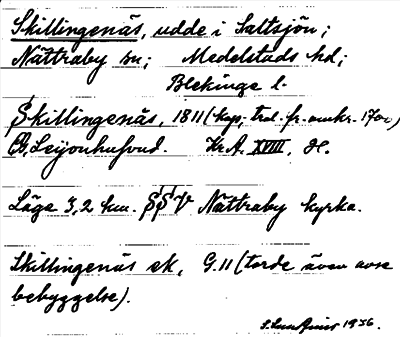 Skillingenäs, udde i Saltsjön;
Nättraby sn; Medelstads hd;
Blekinge l.
Skillingenäs, 1811 (kop. trol. fr. omkr. 1700)
B. Leijonhufvud. Kr.A. XVIII. H.
Läge 3,2 km. SSV Nättraby kyrka.
Skillingenäs ek, G.11 (torde även avse
bebyggelse).
1926.